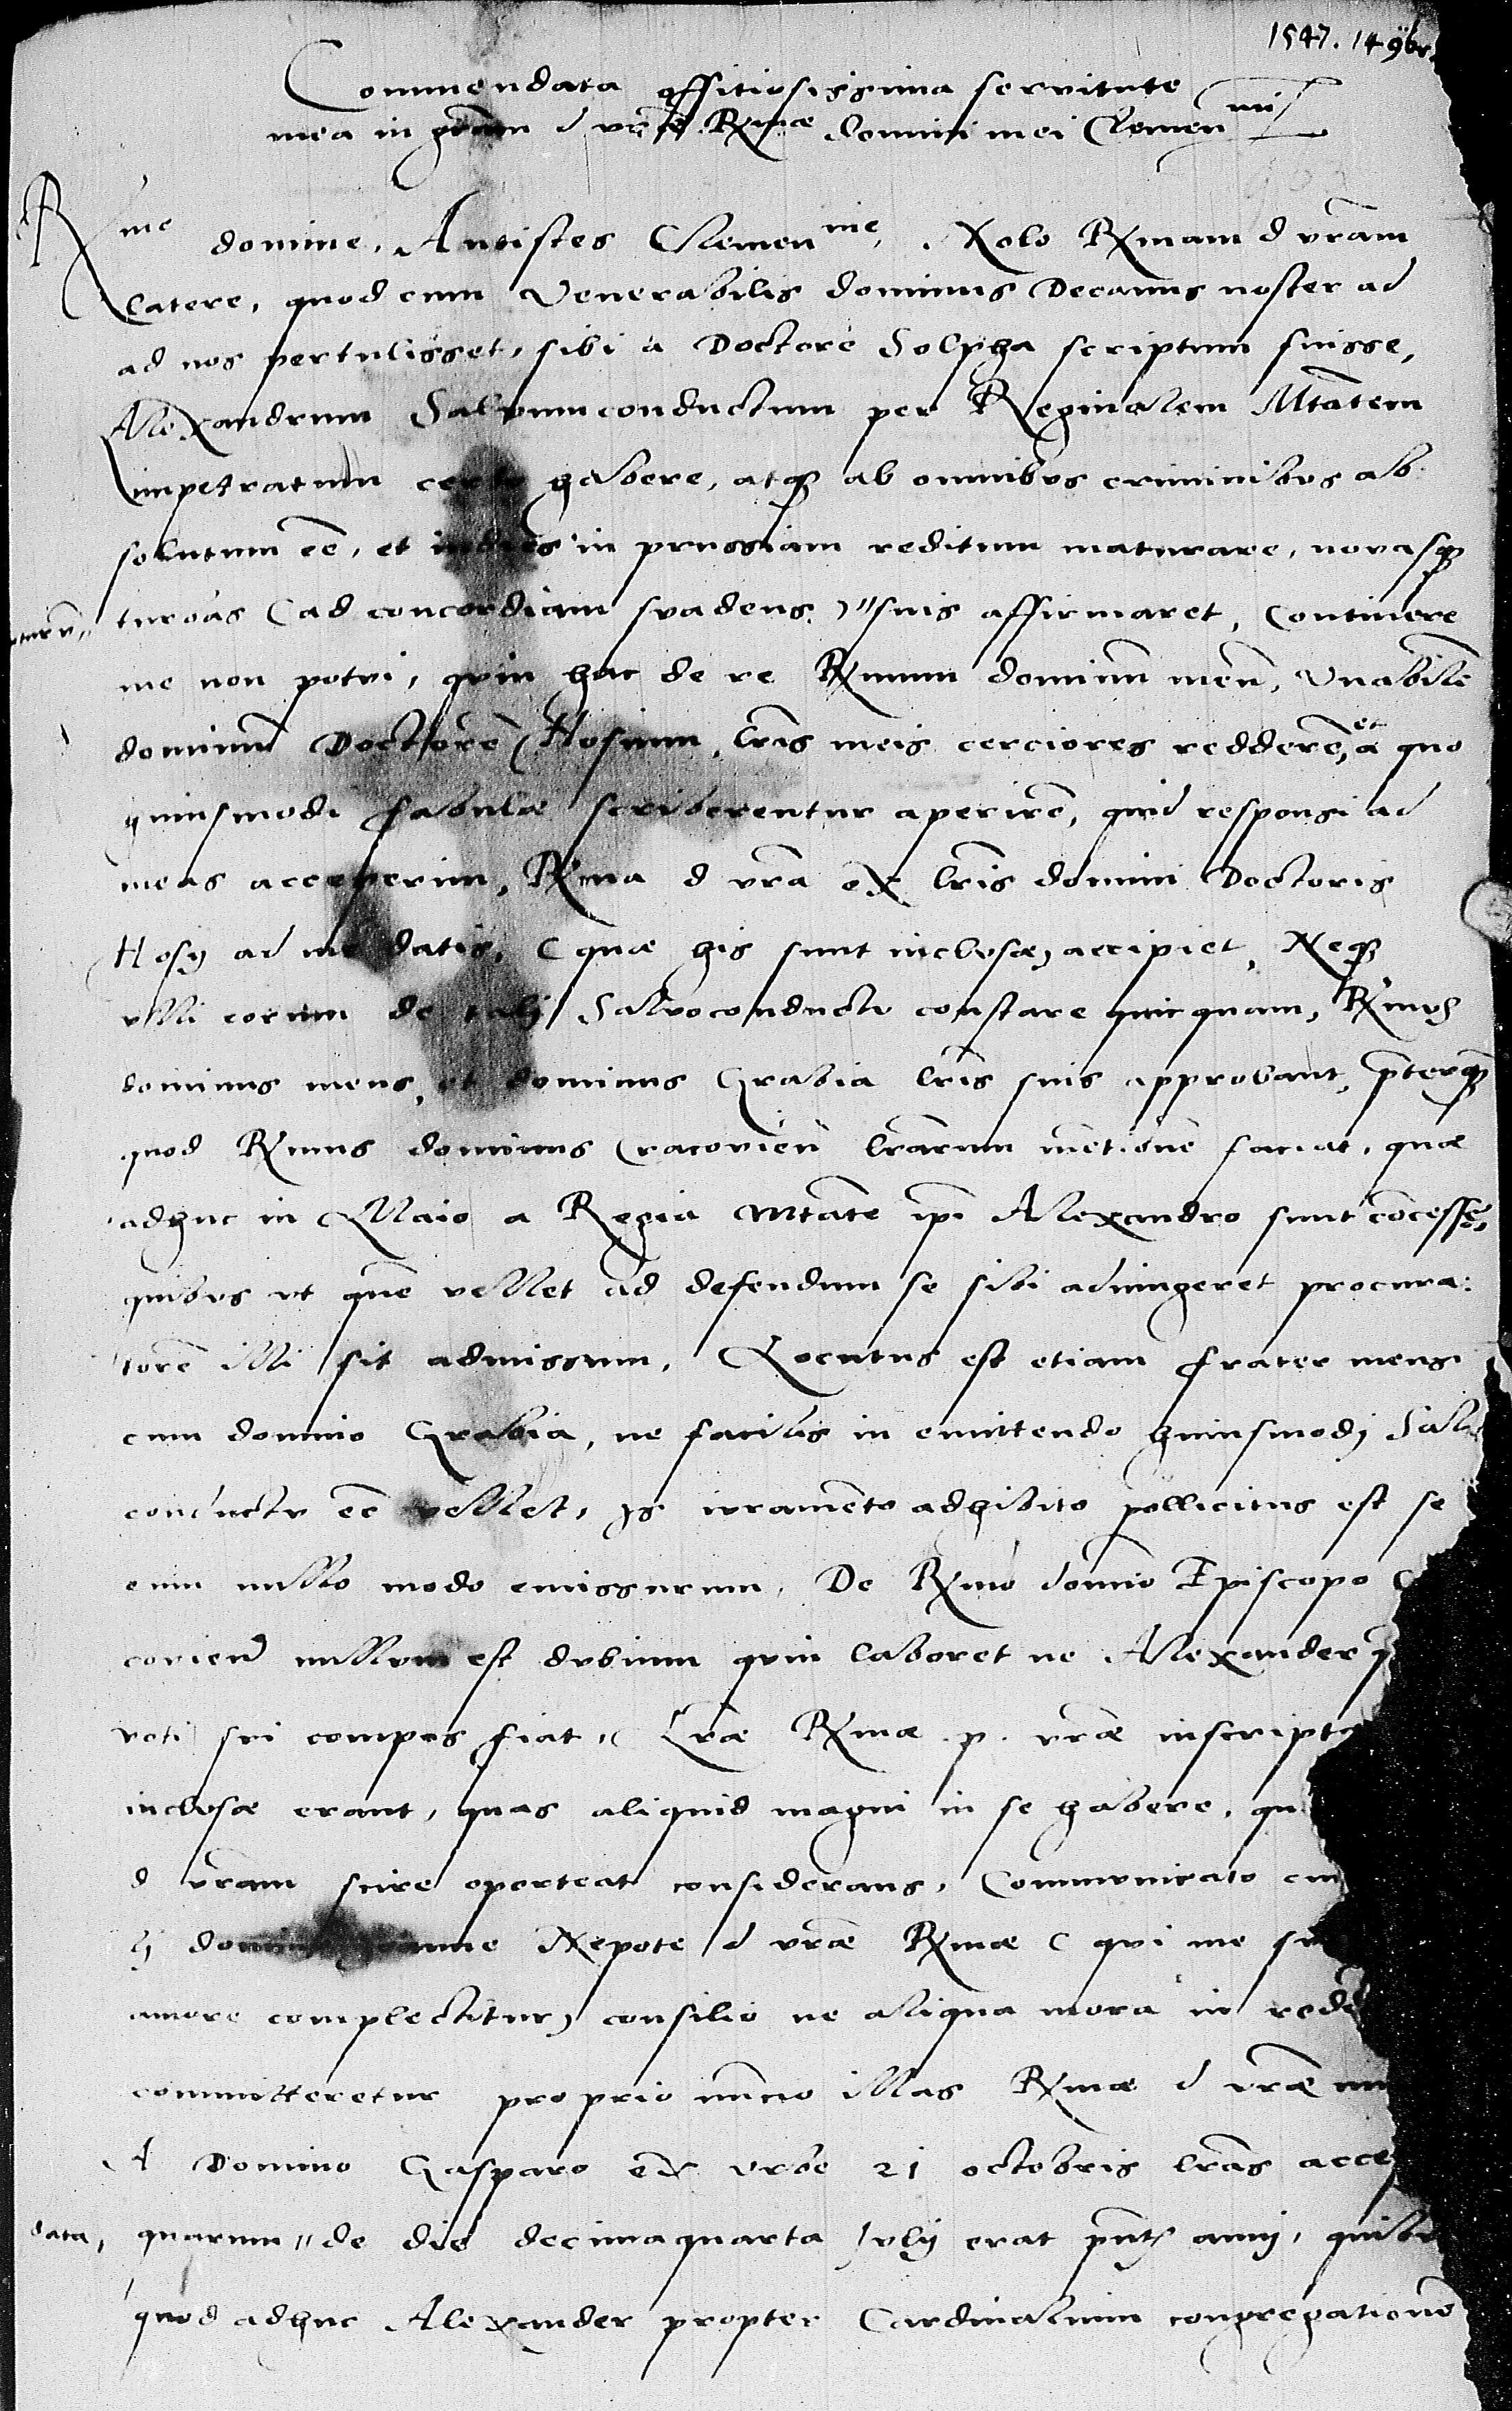 1547. 14 9br.
Commendata offitiosissima servitute
mea in gratiam d vrae Rxmae domini mei Clemen mi
Rxme domine, Antistes Clemen me, Nolo Rxmam d vram
latere, quod cum Venerabilis dominus Decanus noster ad
ad nos pertulisset, sibi a Doctore Solpha scriptum fuisse,
Alexandrum Salvumconductum per Reginalem Mtatem
impetratum certo habere, atq ab omnibus criminibus ab
solutum eē, et indies in prussiam reditum maturare, novasq
turbas (ad concordiam suadens) suis affirmaret, Continere
me non potui, quin hac de re Rxmum dominum meū, Vnabilē
dominū Doctorē Hosium, lrīs meis cerciores redderē, et a quo
huiusmodi fabulae scriberentur aperirē, quid responsi ad
meas acceperim, Rxma d vra ex lrīs domini Doctoris
Hosij ad me datis, (quae his sunt inclusae) accipiet, Neq
ulli eorum de tali Salvoconductu constare quicquam, Rxmus
dominus meus, et dominus Grabia lrīs suis approbant, pterq
quod Rxmus dominus Cracovień lrarum mētionē faciat, quae
adhuc in Maio a Regia Mtate ipi Alexandro sunt cōcessae,
quibus ut quē vellet ad defendum se sibi adiungeret procura:
torē illi sit admissum, Locutus est etiam frater meus
cum domino Grabia, ne facilis in emittendo huiusmodj Salvo
conductu eē vellet, is iuramento adhibito pollicitus est se
eum nullo modo emissurum, De Rxmo domino Episcopo C
covień nullum est dubium quin laboret ne Alexander
voti sui compos fiat, Lrae Rxmae p. vrae inscriptae
inclusae erant, quas aliquid magni in se habere, qu
d vram scire oporteat considerans, Communicato cum
domino Nepote d vrae Rxmae (qui me
amore complectitur) consilio ne aliqua mora in redd
committeretur proprio nuncio illas Rxmae d vrae
A Domino Gasparo ex urbe 21 octobris lras acce
data, quarum de die decimaquarta Julij erat pntis anni, quibus
quod adhuc Alexander propter Cardinalium congregationē